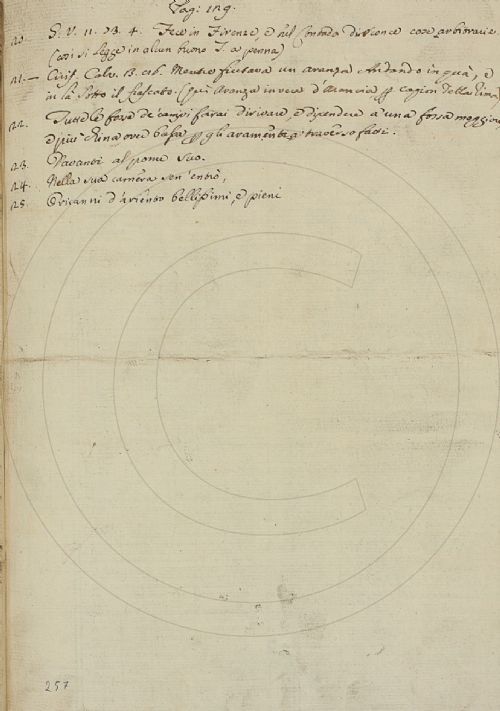 Pag: 129.
20. G. V. 11. 3. 4. Fece in Firenze, e nel contado diverse cose arbitrarie
(così si legge in alcun buono T. a penna)
21. — Ciriff. Calv. B. Mentre un avanza andando in quà, e
in là sotto il (qui Avanza invece d'Avancia p cagion della rima
22. Tutte le fosse de' campi farai dirivare, e dipendere a una fossa maggiore
e più una ove p gli a traverso fatti.
23. Davanti al pome suo.
24. Nella sua camera sen' entrò,
25. Oricanni d'ariento bellissimi, e pieni
257